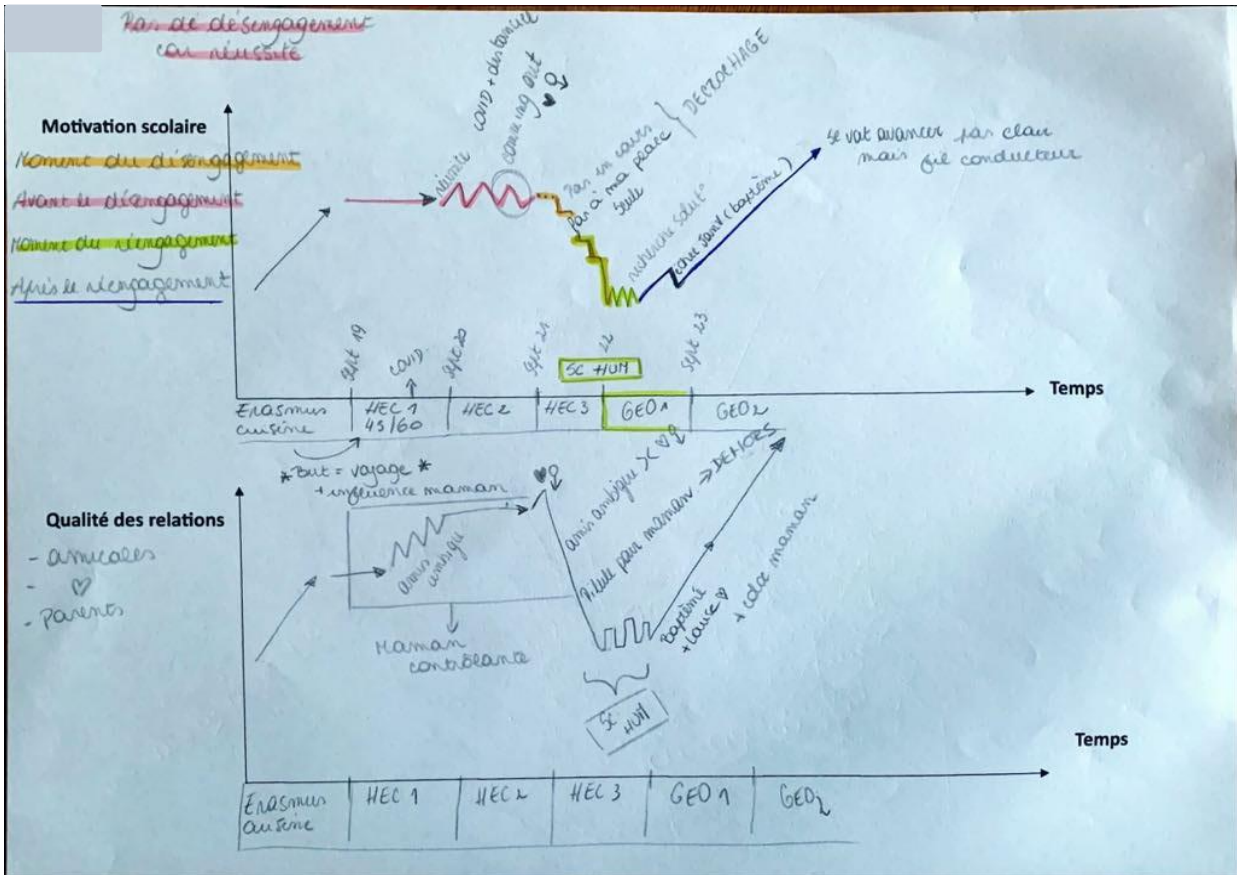 Pas de désengagement
car réussite
Motivation scolaire
Moment du désengagement
Avant le désengagement
Moment du réengagement
Après le réengagement
réussite
COVID + distanciel
coming out
♥ ♀
Pas en cours
Pas à ma place
seule
} DECROCHAGE
recherche solut°
échec Janv (baptême)
se voit avancer pas clair
mais fil conducteur
Sept 19
COVID
Sept 20
Sept 21
22
Sept 23
SC HUM
Temps
Erasmus
cuisine
HEC 1
45/60
HEC 2
HEC 3
GEO 1
GEO2
*But = voyage *
+ influence maman
Qualité des relations
- amicales
- ♡
- Parents
amis
ambigu
♥ ♀
Maman
contrôlante
amis ambigue >< ♡ ♀
Pilule pour maman → DEHORS
Baptême
+ cause ♡
+ coloc maman
SC
HUM
Temps
Erasmus
cuisine
HEC 1
HEC 2
HEC 3
GEO 1
GEO2